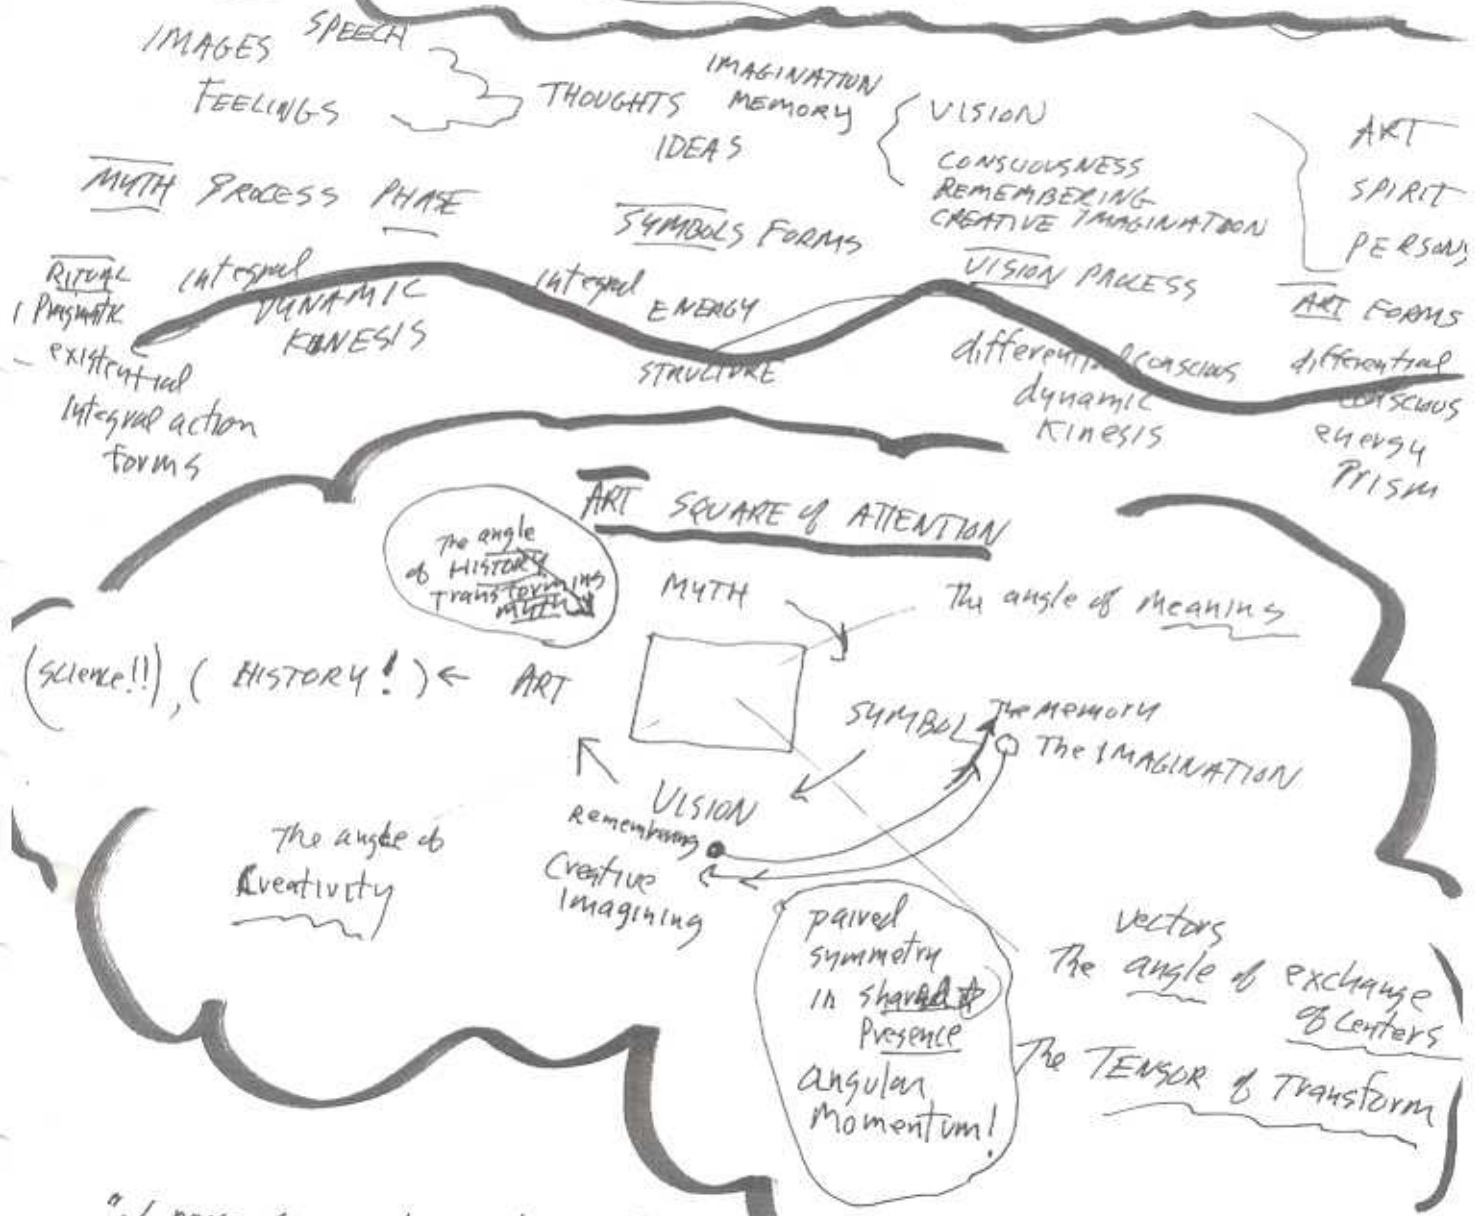 IMAGES SPEECH
FEELINGS
THOUGHTS
IDEAS
IMAGINATION
MEMORY
VISION
CONSCIOUSNESS
REMEMBERING
CREATIVE IMAGINATION
ART
SPIRIT
PERSONS
MYTH PROCESS PHASE
SYMBOLS FORMS
VISION PROCESS
ART FORMS
RITUAL
Pragmatic
existential
Integral action
forms
integral
DYNAMIC
KINESIS
integral
ENERGY
STRUCTURE
differential conscious
dynamic
Kinesis
differential
conscious
energy
Prism
ART SQUARE of ATTENTION
The angle
of HISTORY
Transforming
myth
MYTH
The angle of meaning
(Science!!), (HISTORY!) ← ART
SYMBOL
The memory
The IMAGINATION
VISION
Remembering
Creative
Imagining
The angle of
Creativity
paired
symmetry
in shared
Presence
angular
Momentum!
vectors
The angle of exchange
of centers
The TENSOR of Transform